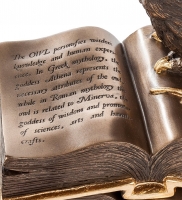 The OWL personifies wisdom,
knowledge and human experi
ence. In Greek mythology, the
goddess Athena represents the
necessary attributes of the
while in Roman mythology the
owl is related to Minerva,
goddess of wisdom and promot
of sciences, arts and
crafts.